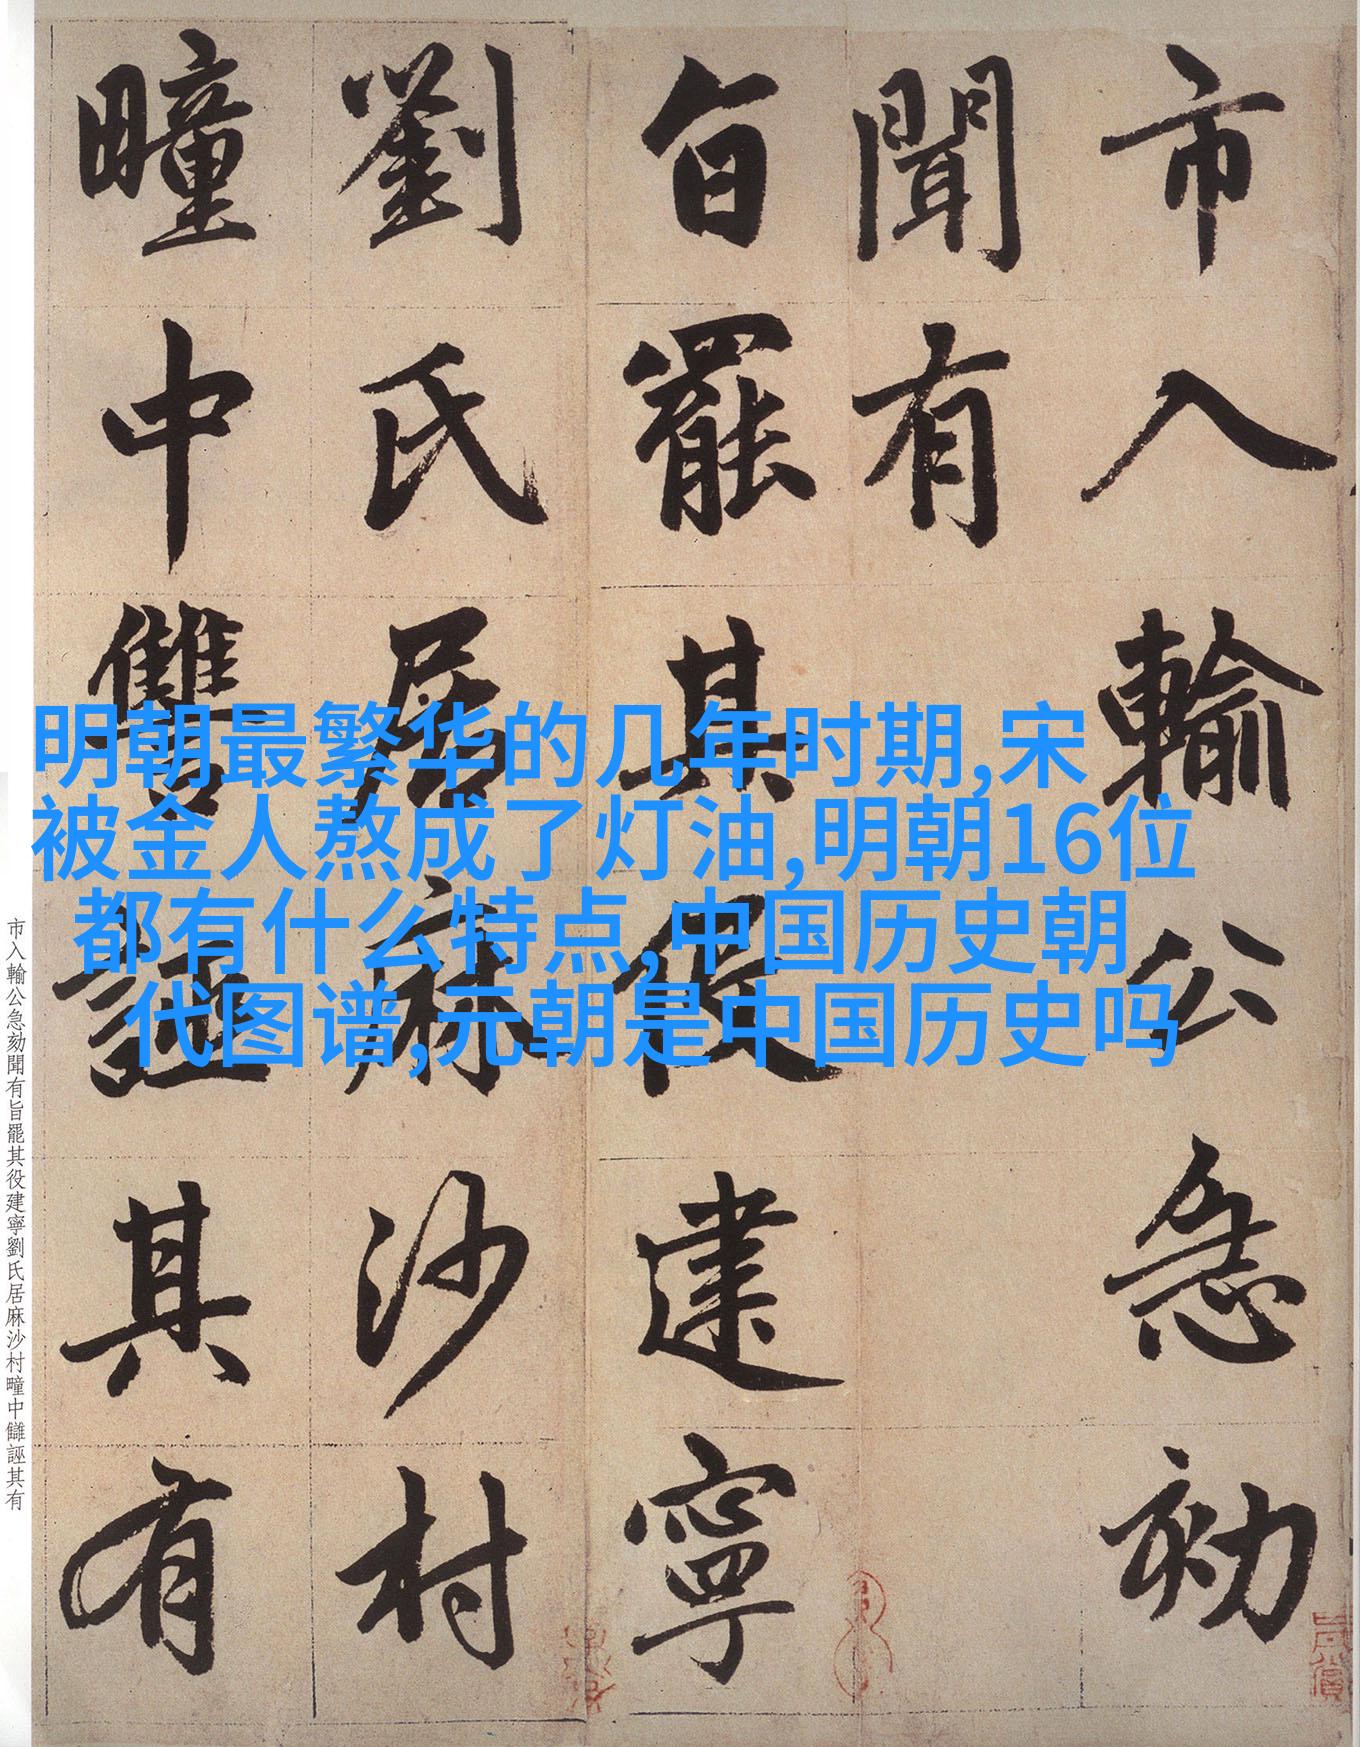 市入輸公急劾
聞有
旨罷其役建寧
劉氏居麻沙村
疃中讐誣其有
明朝最繁华的几年时期,宋
被金人熬成了灯油,明朝16位
都有什么特点,中国历史朝
代图谱,元朝是中国历史吗
市入輸公急劾聞有旨罷其役建寧劉氏居麻沙村疃中讎誣其有